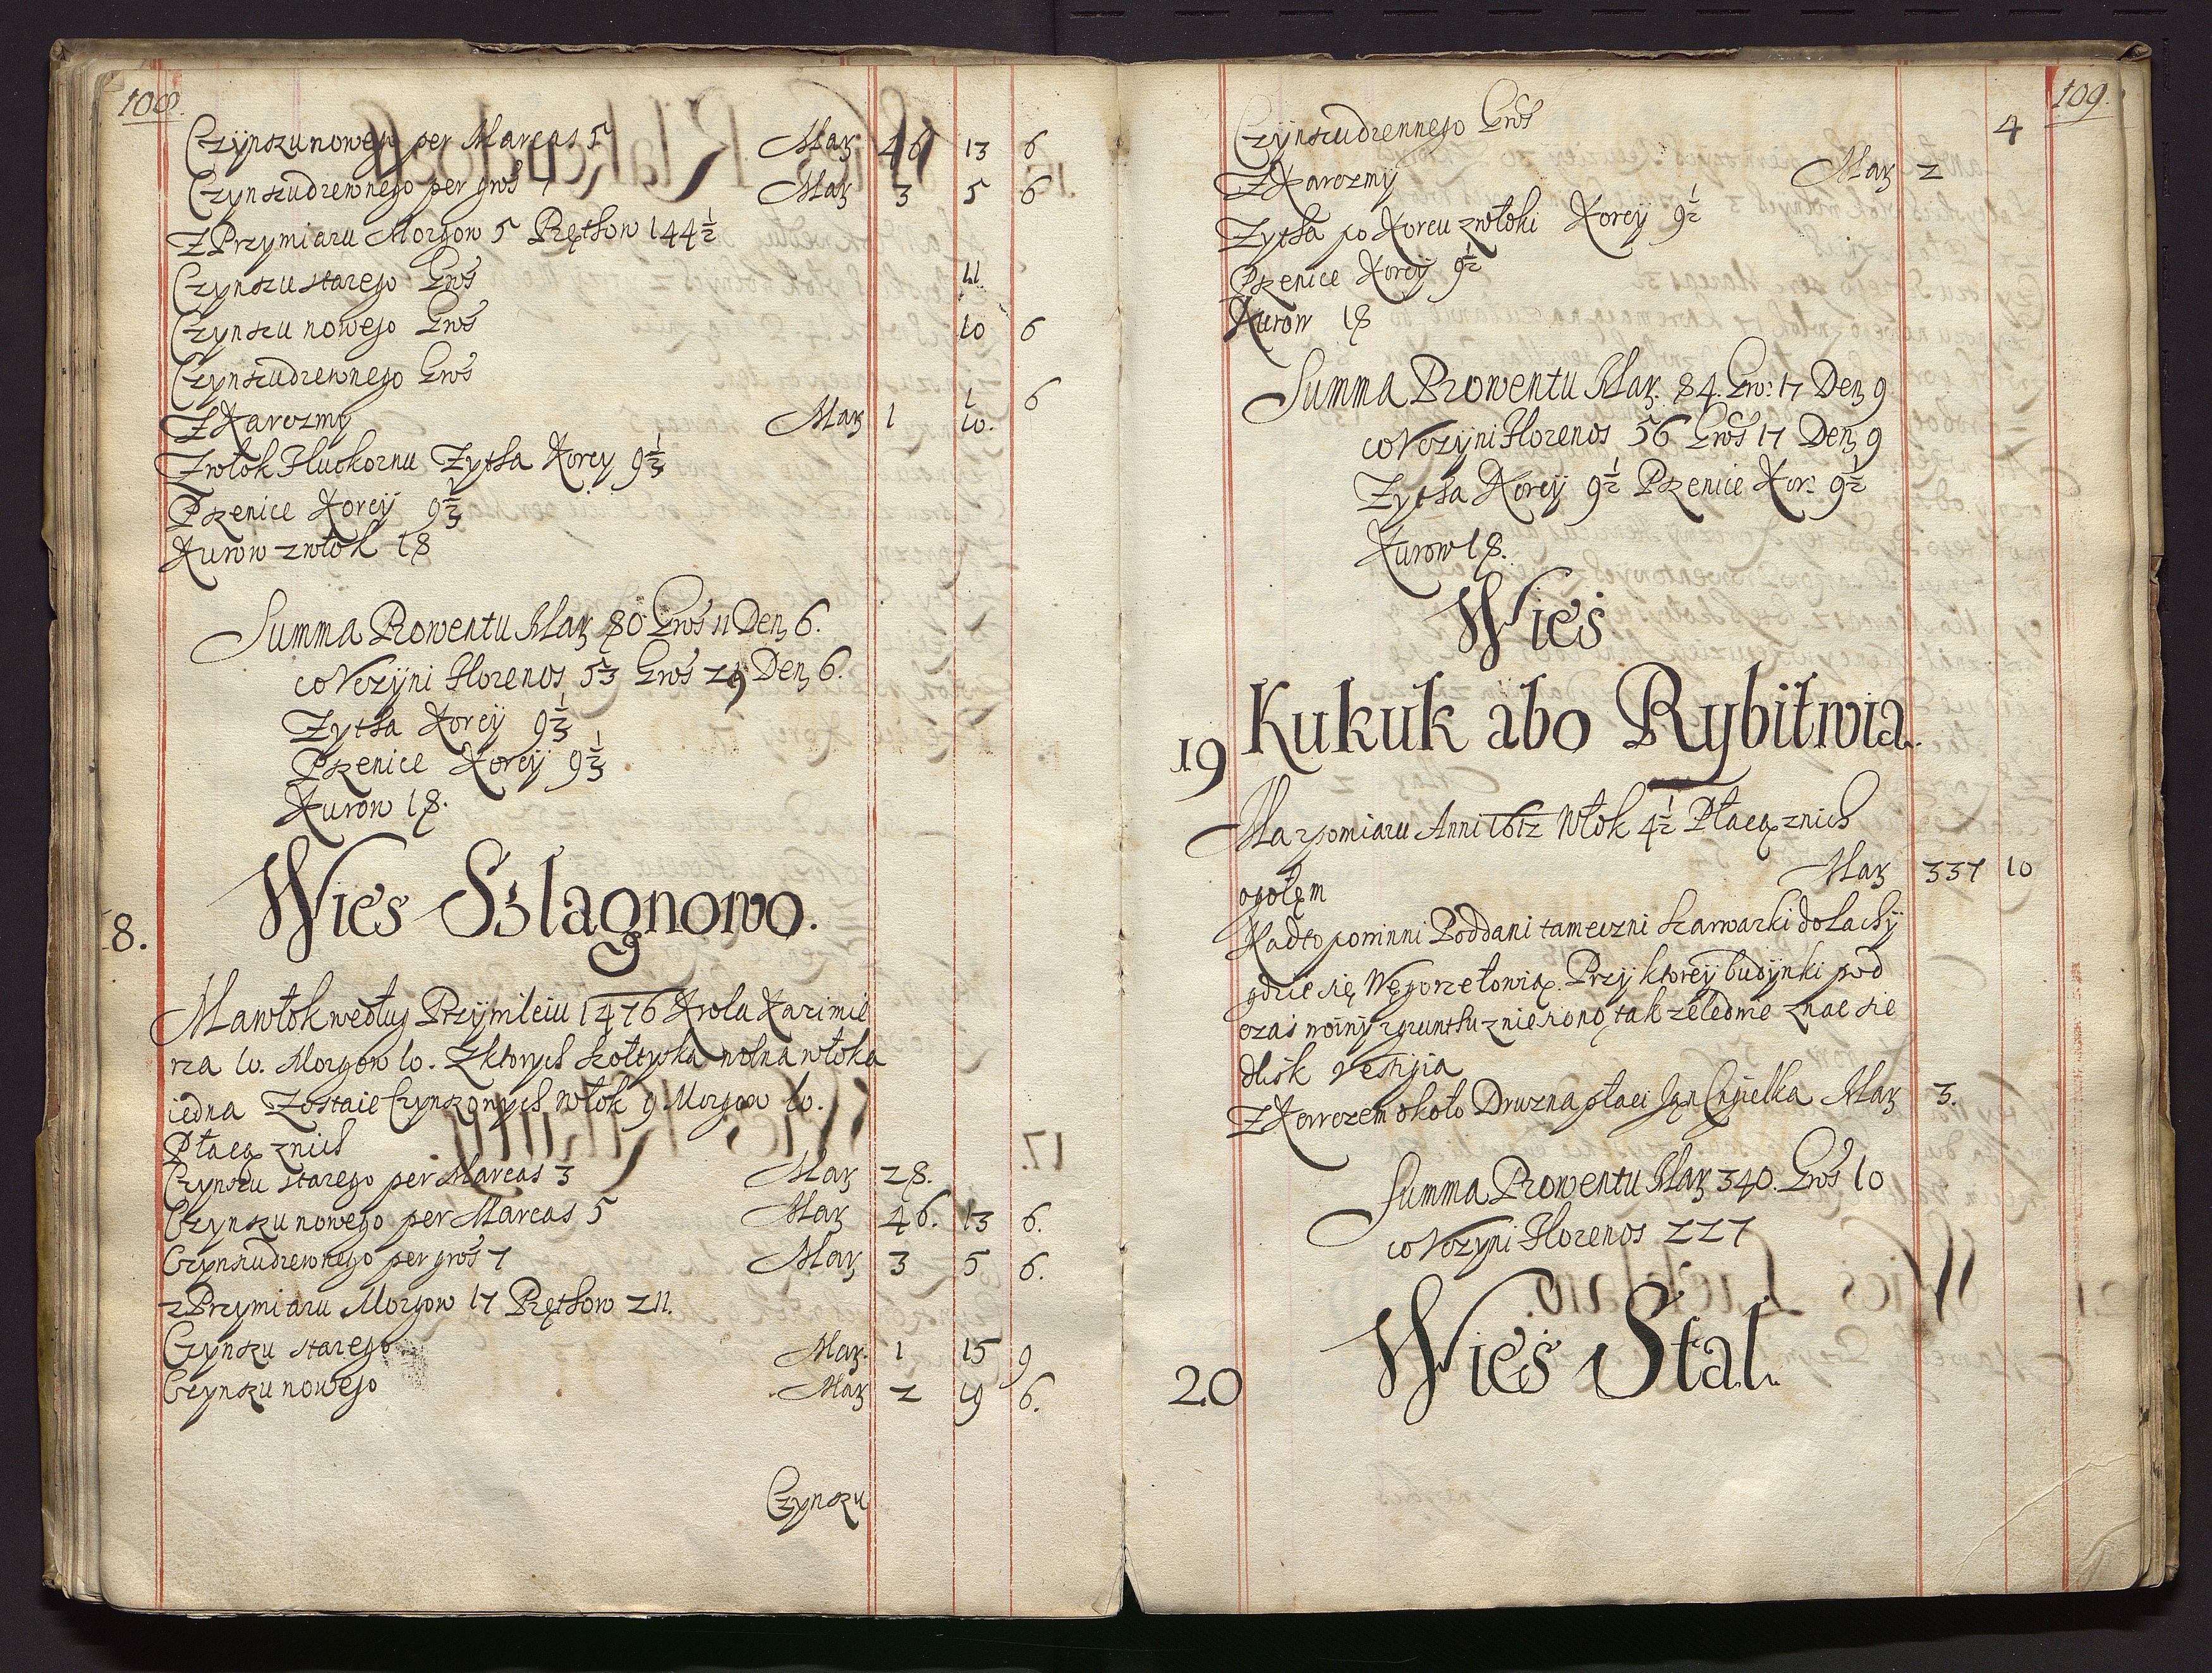 108.
Czÿnszu nowego per Marcas 5 Mar. 46 13 6
Czynszu drzewnego per gros 7 Mar. 3 5 6
Z Przymiaru Morgow 5 Prętkow 144 1/2
Czynszu starego Gros 11.
Czynszu nowego Gros 10 6
Czynszu drzewnego Gros 1 6
Z Karczmy Mar. 1 10.
Z włok Płuckornu Zytka Korcy 9 1/3
Pszenice Korcÿ 9 1/3
Kurow z włok 18
Summa Prowentu Mar. 80 Gros 11 Den. 6.
co Vczÿni Florenos 53 Gros 29 Den. 6.
Zytka Korcÿ 9 1/3
Pszenice Korcÿ 9 1/3
Kurow 18.
18. Wieś Szlagnowo.
Ma włok według Prziwileiu 1476 Krola Kazimie
rza 10. Morgow 10. Z ktorych szołtyska wolna włoka
iedna Zostaie Czynszowych włok 9 Morgow 10.
Płacą z nich
Czynszu starego per Marcas 3 Mar. 28.
Czynszu nowego per Marcas 5 Mar. 46. 13 6.
Czynszu drzewnego per gros 7 Mar. 3 5 6.
z Przymiaru Morgow 17 Prętkow 211.
Czynszu starego Mar. 1 15 9
Czynszu nowego Mar. 2 19 6.
Czynszu
109.
Czÿnszu drzennego Gros 4
Z Karczmy Mar. 2
Zytka po Korcu z włoki Korcÿ 9 1/2
Pszenice Korcÿ 9 1/2
Kurow 18
Summa Prowentu Mar. 84. Gro: 17 Den. 9
co Vczÿni Florenos 56 Gros 17 Den. 9
Zytka Korcÿ 9 1/2 Pszenice Kor: 9 1/2
Kurow 18.
Wieś
19 Kukuk abo Rybitwia.
Ma z pomiaru Anni 1612 Włok 4 1/2 Płacą z nich
ogołem Mar. 337 10
Nadto powinni Poddani tameczni szarwarki do Lachÿ
gdzie się Węgorze łowią. Przy ktoreÿ budÿnki pod
czas woinÿ z gruntku zniesiono, tak że ledwie znac sie
dlisk vestigia
Z Korczem około Druzna płaci Jan Cygielka Mar. 3.
Summa Prowentu Mar. 340. Gros 10
co Vczyni Florenos 227
20 Wieś Stal.